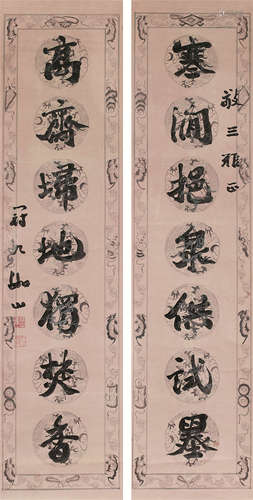 敬三雅正
寒澗挹泉供試墨
高齋埽地獨焚香
冠九如山